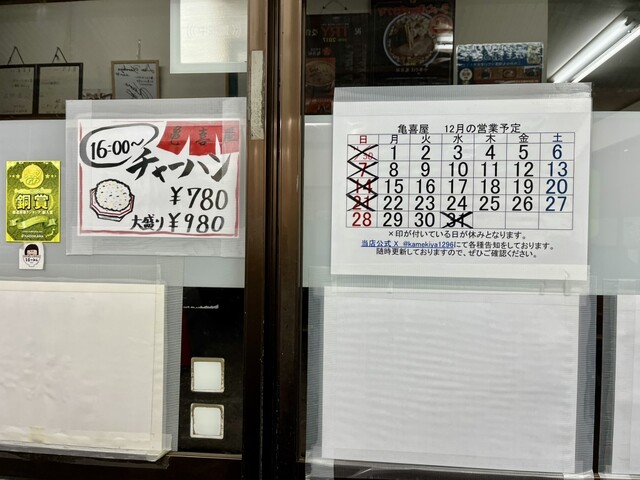 16:00~
亀喜屋
チャーハン
¥780
大盛り ¥980
銅賞
亀喜屋 12月の営業予定
日 月 火 水 木 金 土
30 1 2 3 4 5 6
7 8 9 10 11 12 13
14 15 16 17 18 19 20
21 22 23 24 25 26 27
28 29 30 31
×印が付いている日が休みとなります。
当店公式 X @kamekiya1296にて各種告知をしております。
随時更新しておりますので、ぜひご確認ください。